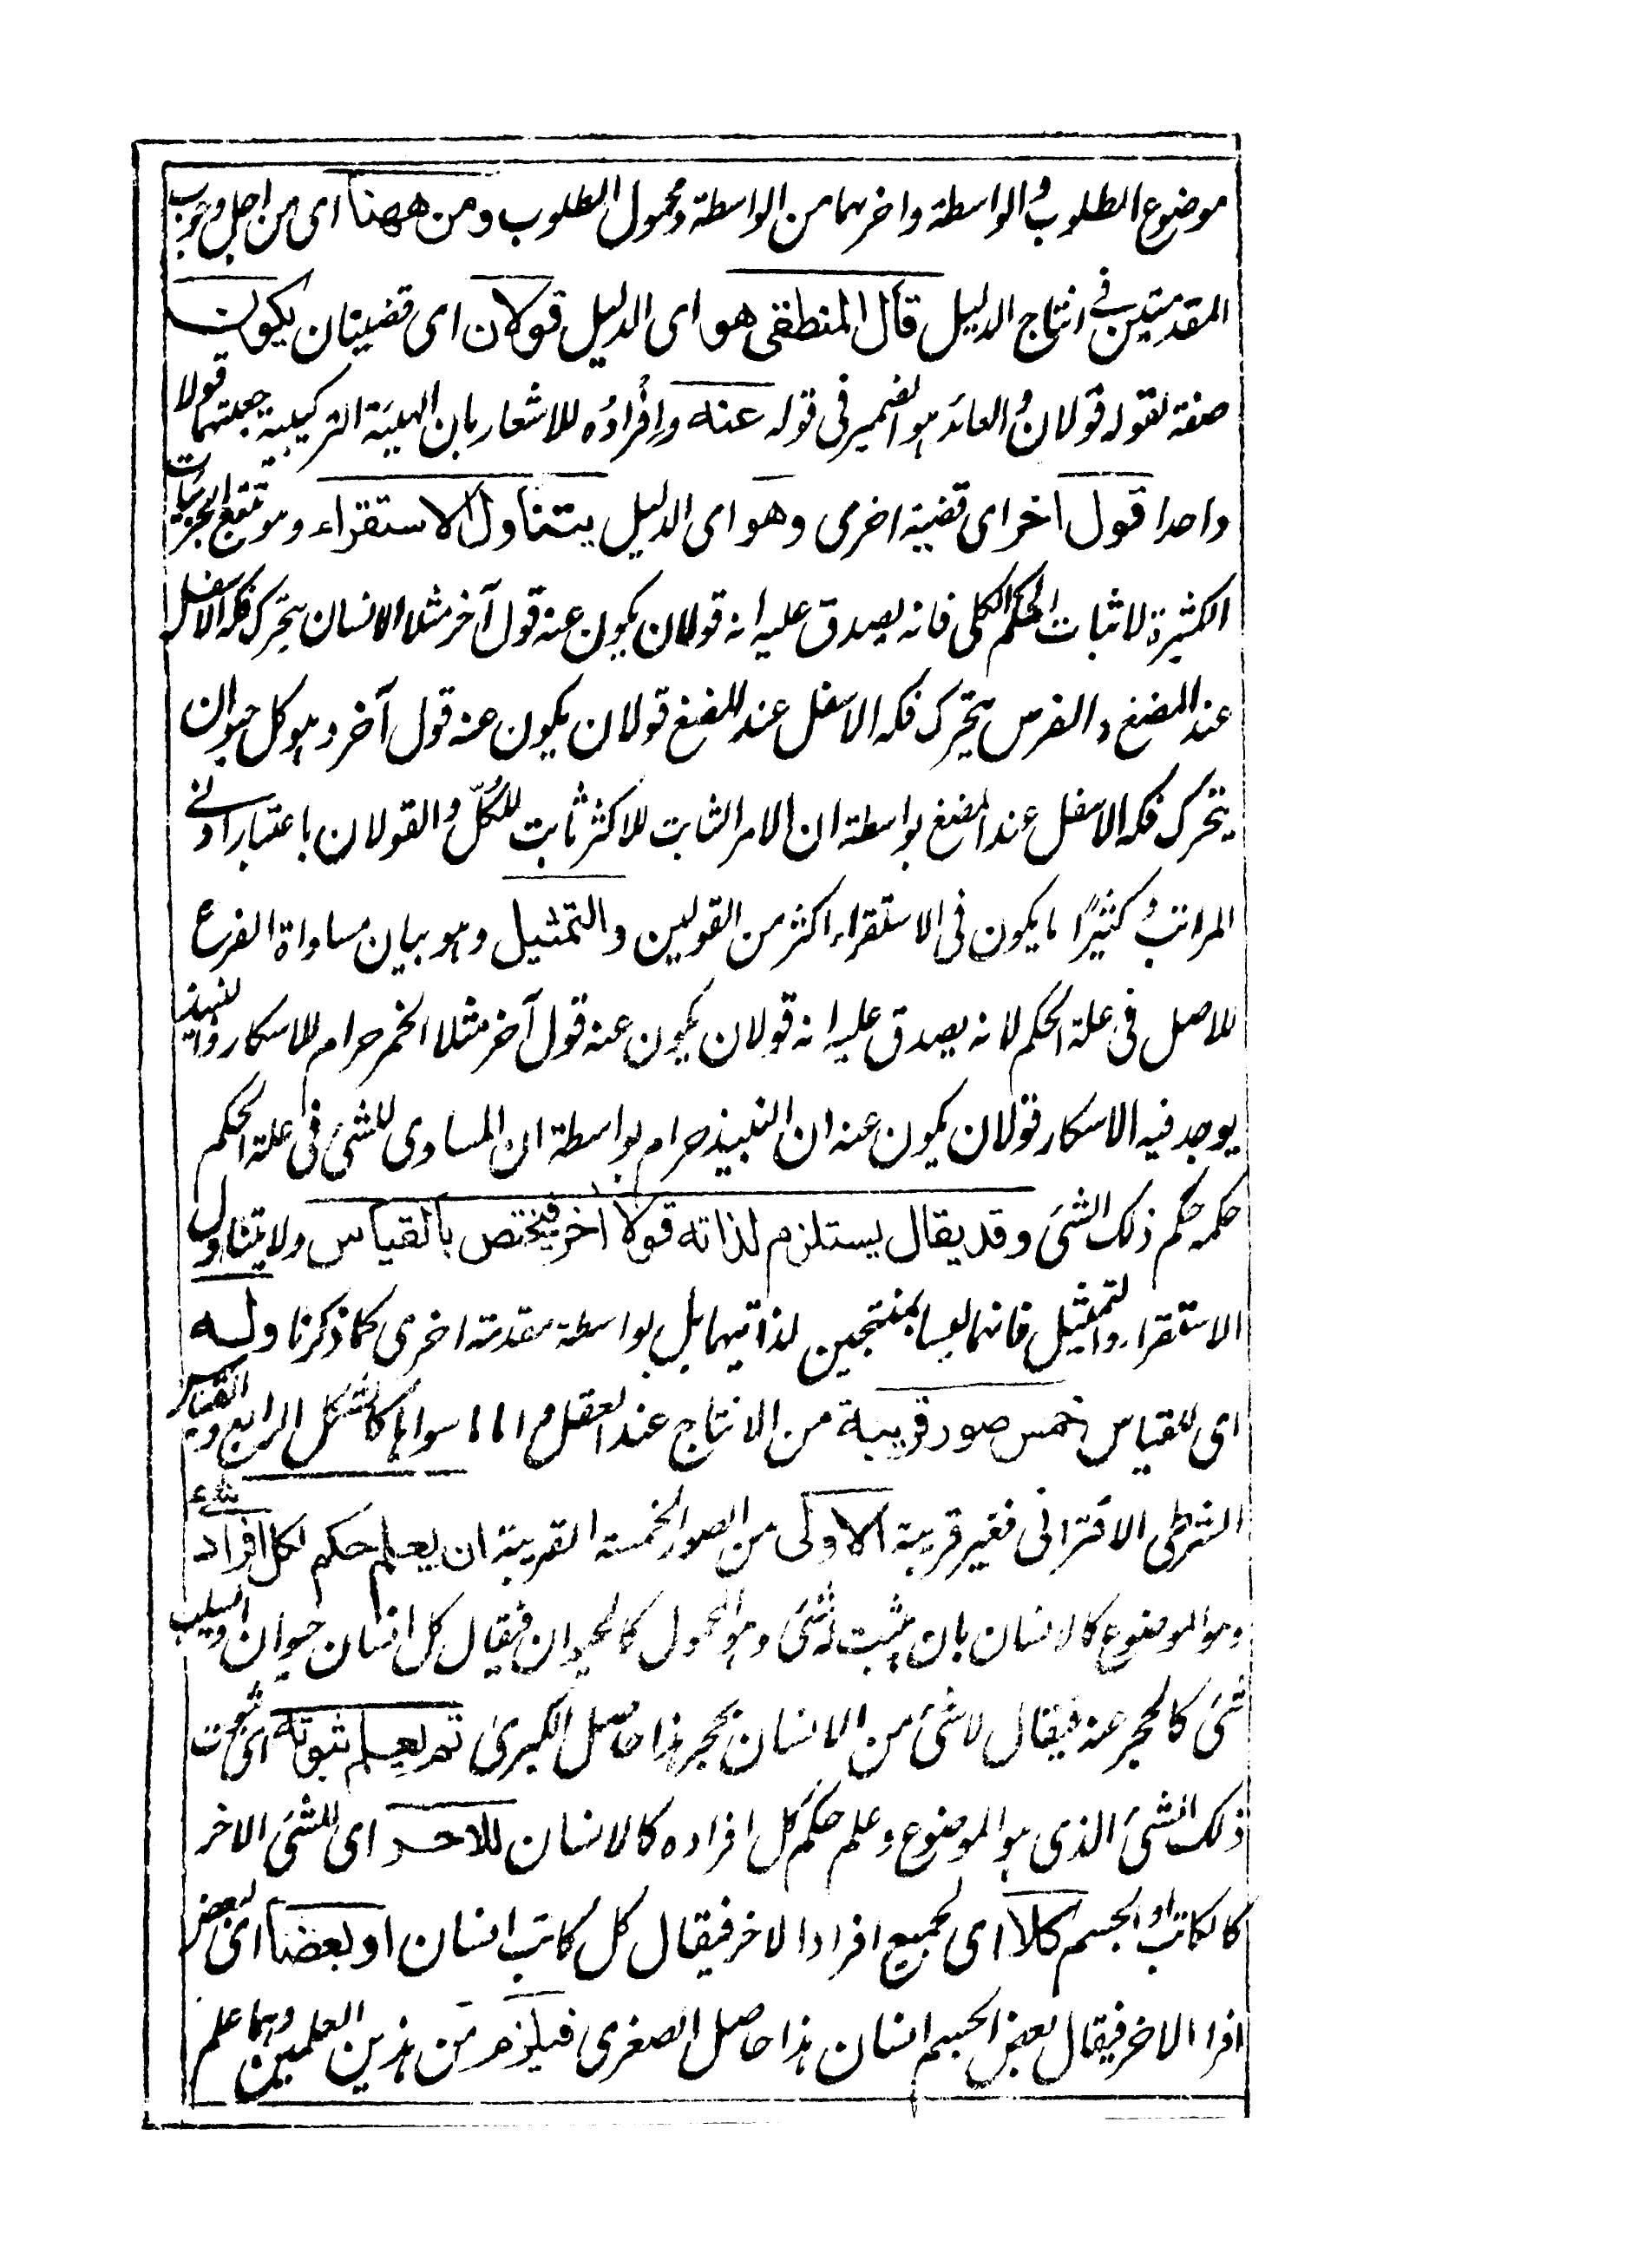 موضوع المطلوب والواسطة واخرىهما من الواسطة ومحمول المطلوب ومن ههنا اى من اجل وجوب
المقدمتين فى انتاج الدليل قال المنطقى هو اى الدليل قولان اى قضيتان يكون
صفة لقوله قولان والعائد هو الضمير فى قوله عنه وإفرادُه للاشعار بان الهيئة التركيبية جعلتهما قولا
واحدا قول اخر اى قضية اخرى وهو اى الدليل يتناول الاستقراء وهو تتبع الجزئيات
الكثيرة لاثبات الحكم الكلى فانه يصدق عليه انه قولان يكون عنه قول آخر مثلا الانسان يتحرك فكه الاسفل
عند المضغ والفرس يتحرك فكه الاسفل عند المضغ قولان يكون عنه قول آخر وهو كل حيوان
يتحرك فكه الاسفل عند المضغ بواسطة ان الامر الثابت للاكثر ثابت للكلّ والقولان باعتبار ادنى
المراتب وكثيرًا ما يكون فى الاستقراء اكثر من القولين والتمثيل وهو بيان مساواة الفرع
للاصل فى علة الحكم لانه يصدق عليه انه قولان يكون عنه قول آخر مثلا الخمر حرام للاسكار والنبيذ
يوجد فيه الاسكار قولان يكون عنه ان النبيذ حرام بواسطة ان المساوى للشئ فى علة الحكم
حكمه حكم ذلك الشئ وقد يقال يستلزم لذاته قولا اخر فيختص بالقياس ولا يتناول
الاستقراء والتمثيل فانهما ليسا بمنتجين لذاتيهما بل بواسطة مقدمة اخرى كما ذكرنا وله
اى للقياس خمس صور قريبة من الانتاج عند العقل م اما ما سواها كالشكل الرابع والقياس
الشرطى الاقترانى فغير قريبة الاولى من الصور الخمسة القريبة ان يعلم حكم لكل افراد شئ
وهو الموضوع كالانسان بان يثبت له شئ وهو المحمول كالحيوان فيقال كل انسان حيوان او يسلب
شئ كالحجر عنه فيقال لا شئ من الانسان بحجر هذا حاصل الكبرى ثم يعلم ثبوته اى ثبوت
ذلك الشئ الذى هو الموضوع وعلم حكم كل افراده كالانسان للاخر اى للشئ الاخر
كالكاتب او الجسم كلا اى لجميع افراد الاخر فيقال كل كاتب انسان او بعضا اى لبعض
افراد الاخر فيقال بعض الجسم انسان هذا حاصل الصغرى فيلزم من هذين العلمين وهما علم